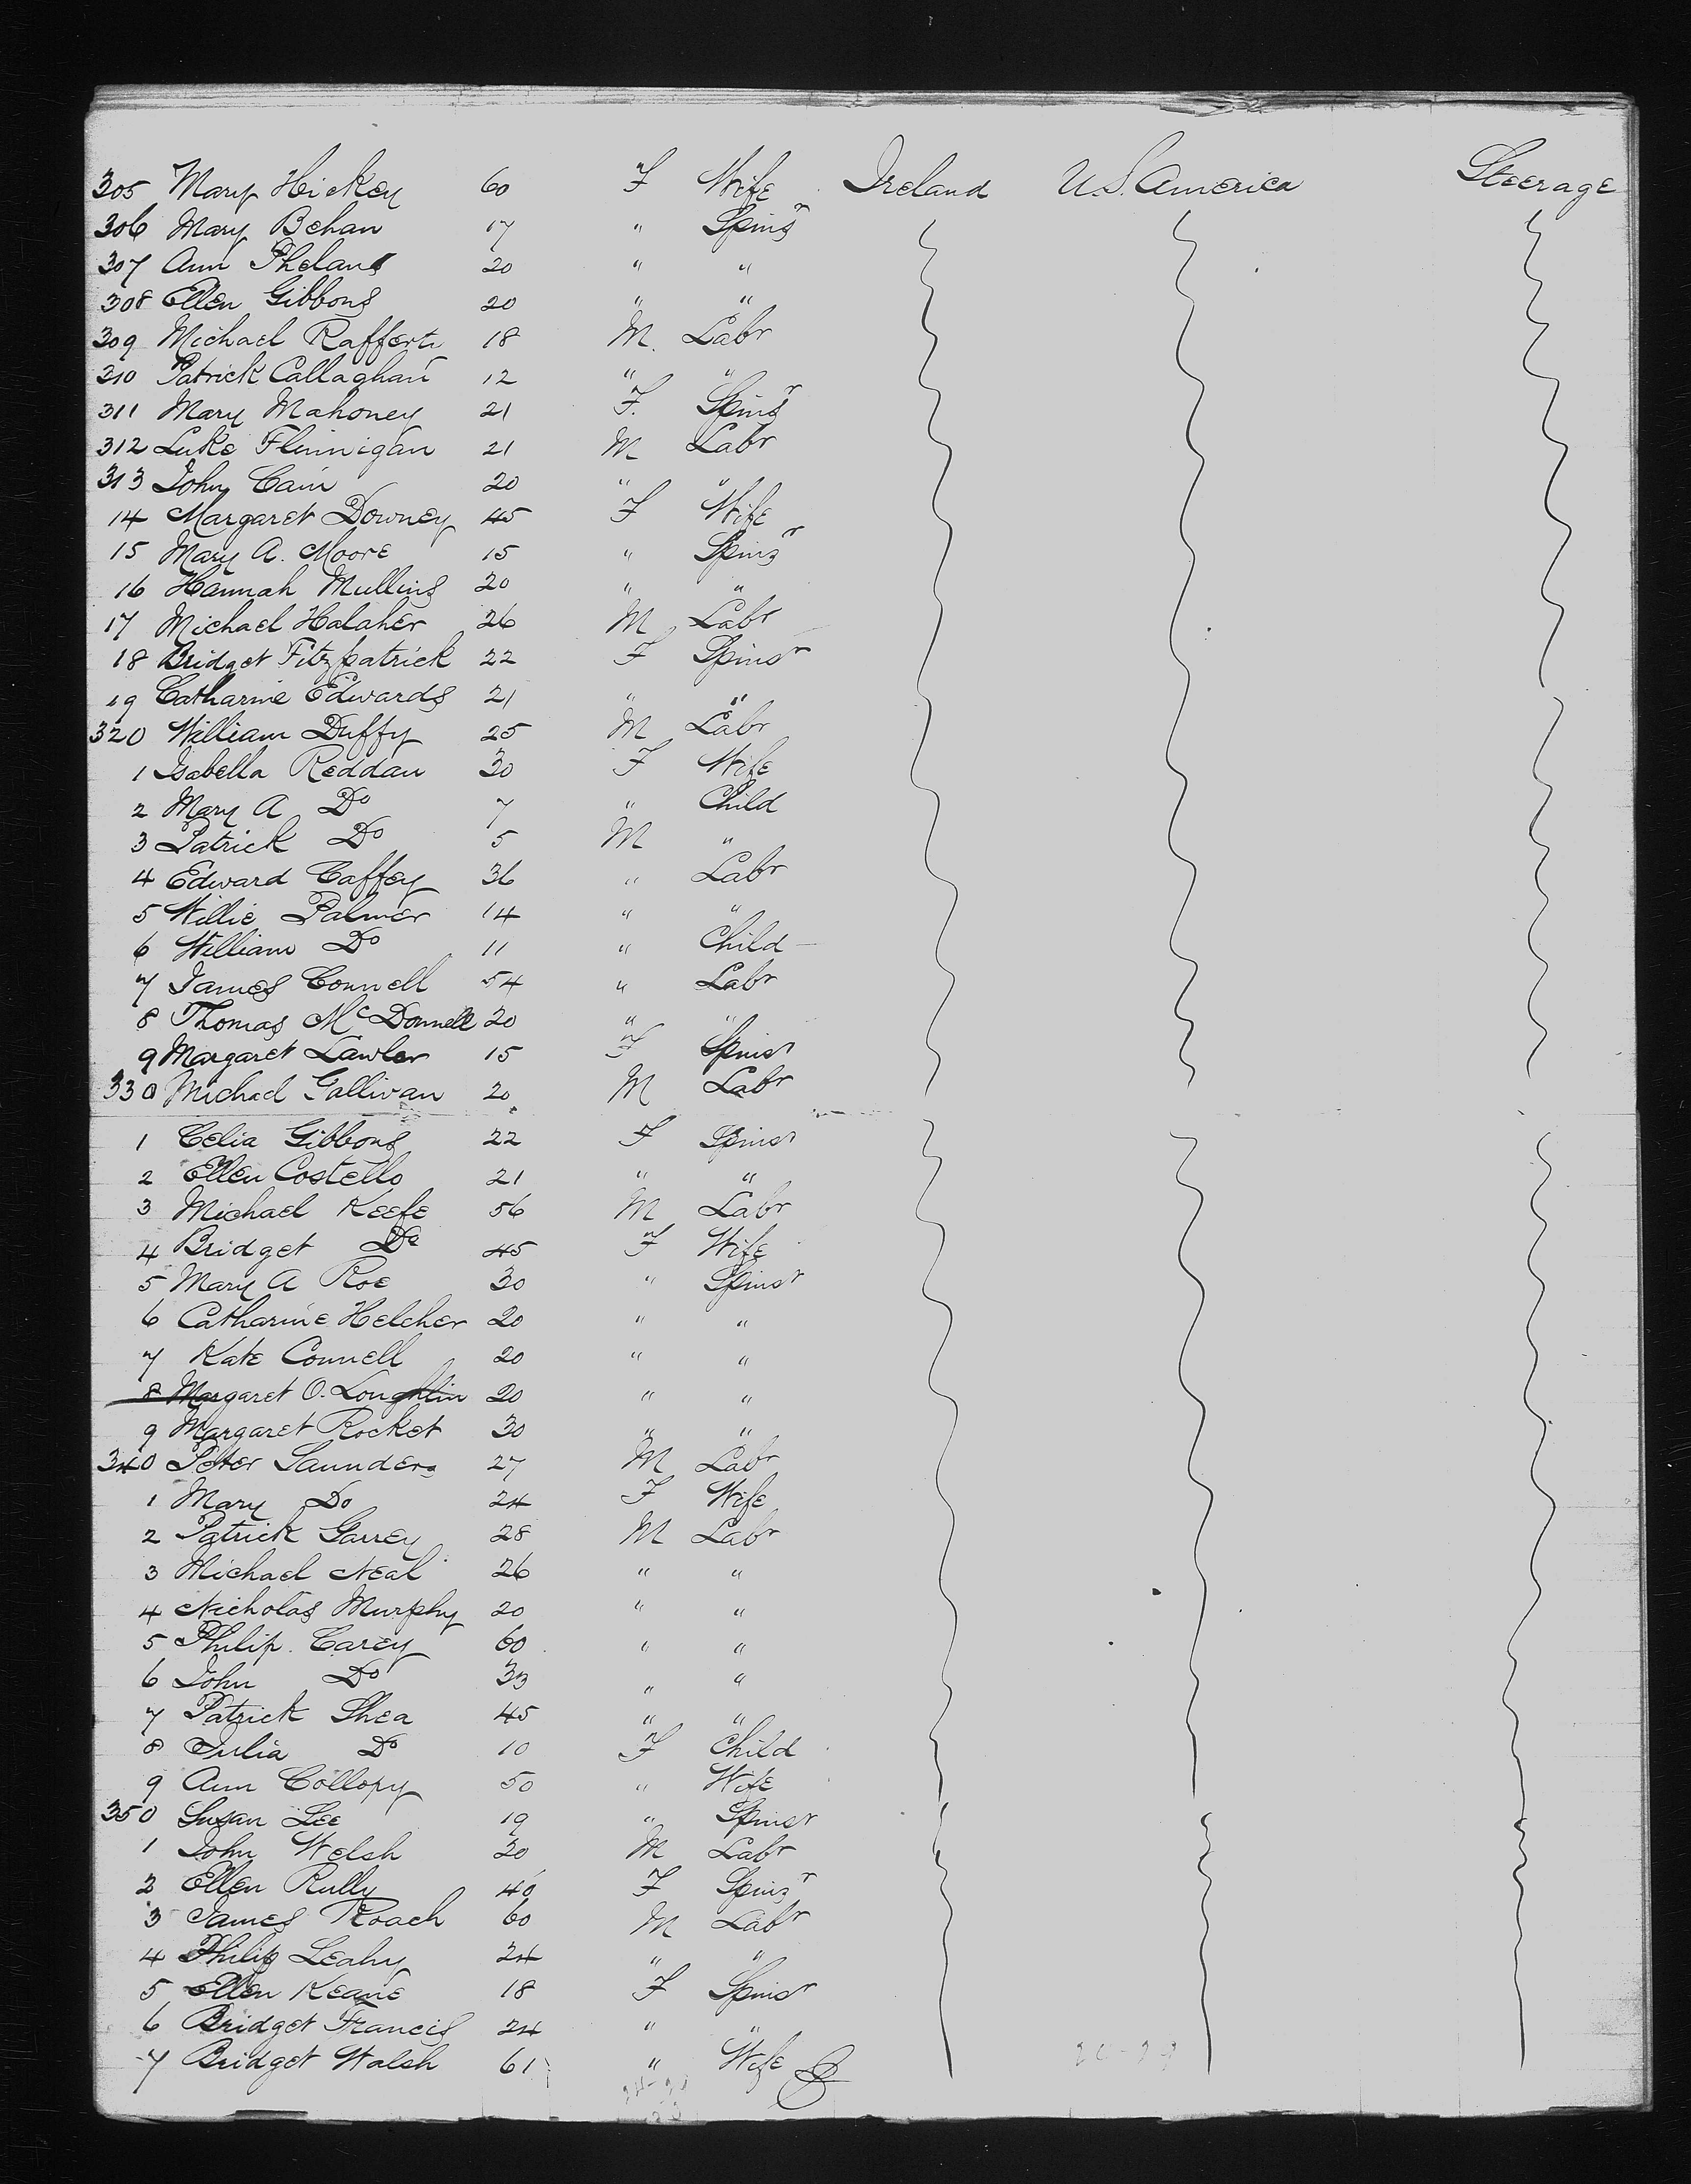 305 Mary Hickey 60 F Wife Ireland U.S. America Steerage
306 Mary Behan 17 " Spinsr
307 Ann Phelans 20 " "
308 Ellen Gibbons 20 " "
309 Michael Rafferty 18 M. Labr
310 Patrick Callaghan 12 " "
311 Mary Mahoney 21 F. Spinsr
312 Luke Flinnigan 21 M Labr
313 John Cain 20 " "
14 Margaret Downey 45 F Wife
15 Mary A. Moore 15 " Spinsr
16 Hannah Mullins 20 " "
17 Michael Halaher 26 M Labr
18 Bridget Fitzpatrick 22 F Spinsr
19 Catharine Edwards 21 " "
320 William Duffy 25 M Labr
1 Isabella Reddan 30 F Wife
2 Mary A Do 7 " Child
3 Patrick Do 5 M "
4 Edward Caffey 36 " Labr
5 Willie Palmer 14 " "
6 William Do 11 " Child
7 James Connell 54 " Labr
8 Thomas McDonnell 20 " "
9 Margaret Lawler 15 F Spinsr
330 Michael Gallivan 20 M Labr
1 Celia Gibbons 22 F Spinsr
2 Ellen Costello 21 " "
3 Michael Keefe 56 M Labr
4 Bridget Do 45 F Wife
5 Mary A Roe 30 " Spinsr
6 Catharine Helcher 20 " "
7 Kate Connell 20 " "
8 Margaret O. Loughlin 20 " "
9 Margaret Rocket 30 " "
340 Peter Saunders 27 M Labr
1 Mary Do 24 F Wife
2 Patrick Garrey 28 M Labr
3 Michael Neal 26 " "
4 Nicholas Murphy 20 " "
5 Philip Carey 60 " "
6 John Do 33 " "
7 Patrick Shea 45 " "
8 Julia Do 10 F Child
9 Ann Collopy 50 " Wife
350 Susan Lee 19 " Spinsr
1 John Welsh 30 M Labr
2 Ellen Rully 40 F Spinsr
3 James Roach 60 M Labr
4 Philip Leahy 24 " "
5 Ellen Keane 18 F Spinsr
6 Bridget Francis 24 " "
7 Bridget Walsh 61 " Wife